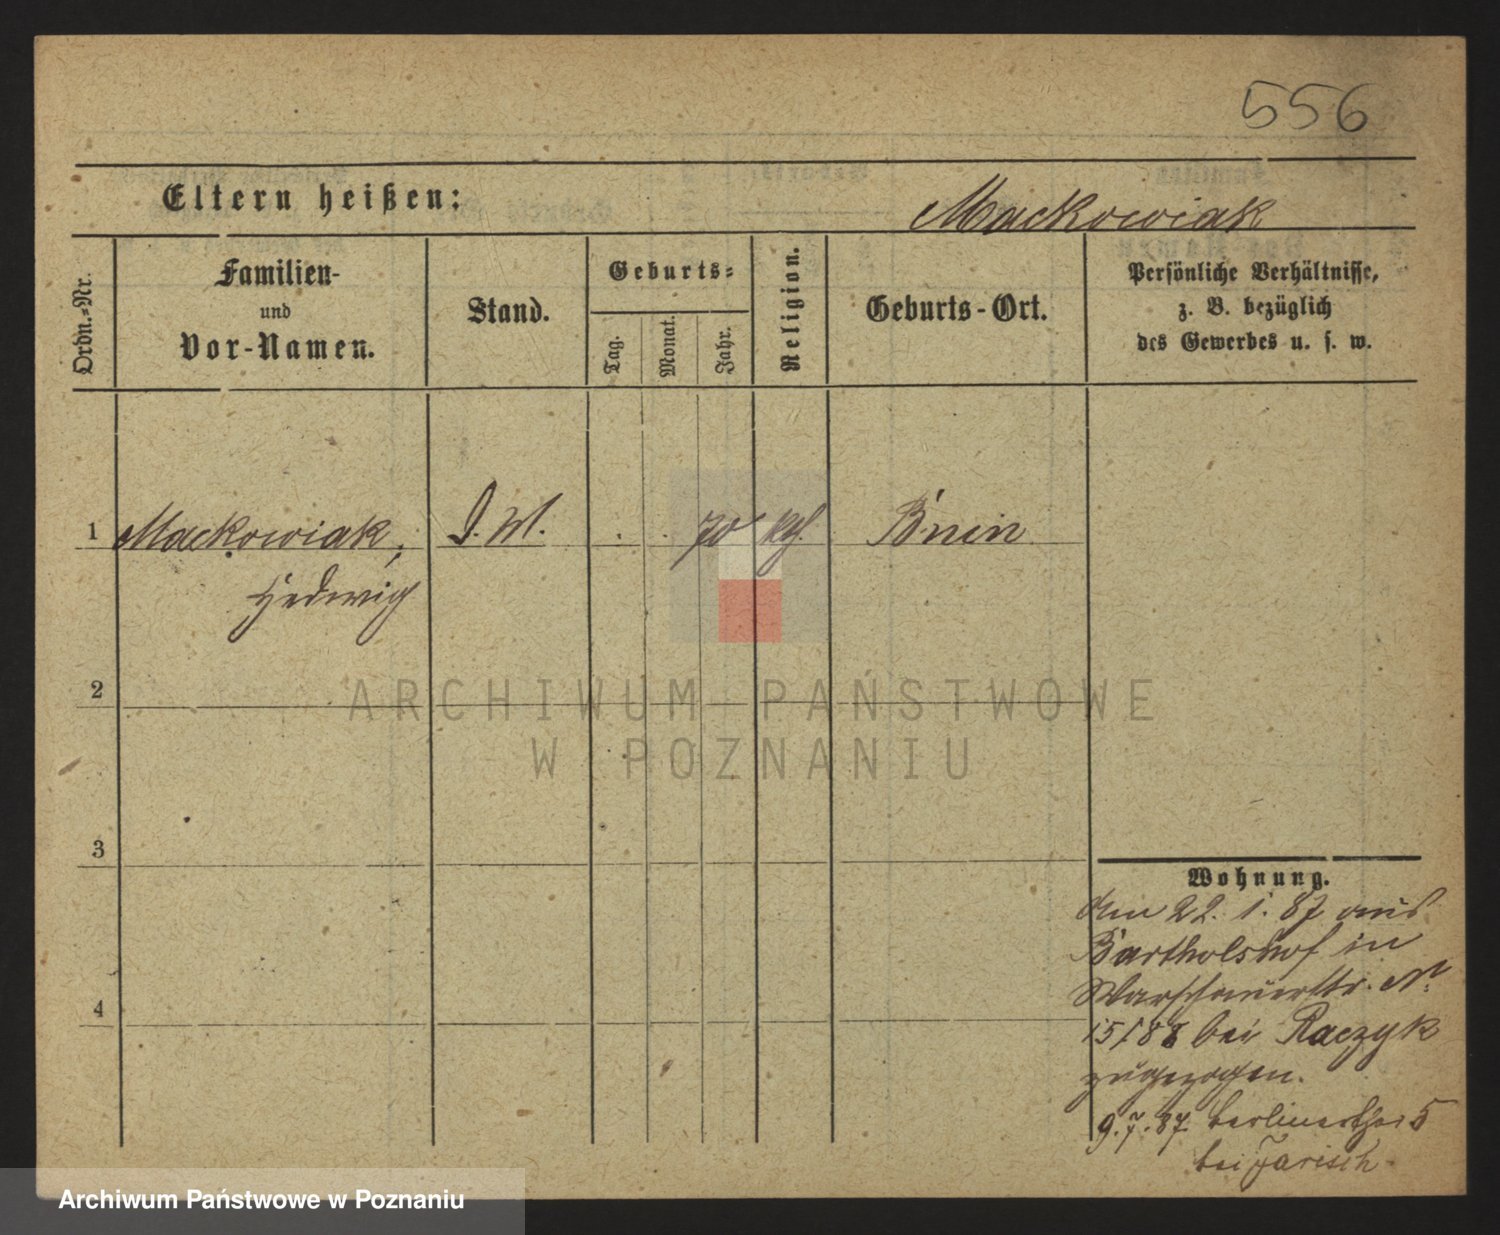 556
Eltern heißen:
Mackowiak
Ordn.-Nr.
Familien-
und
Vor-Namen.
Stand.
Geburts-
Tag.
Monat.
Jahr.
Religion.
Geburts-Ort.
Persönliche Verhältnisse,
z. B. bezüglich
des Gewerbes u. s. w.
1 Mackowiak, D. M. . . 70 kth. Bnin
Hedwig
2
3
4
Wohnung.
Am 22. 1. 87 aus
Bartholshof in
Warschauerstr. No
15/88 bei Raczyk
zugezogen.
9.7.87 Berlinerthor 5
bei Jarisch
ARCHIWUM PAŃSTWOWE
W POZNANIU
Archiwum Państwowe w Poznaniu